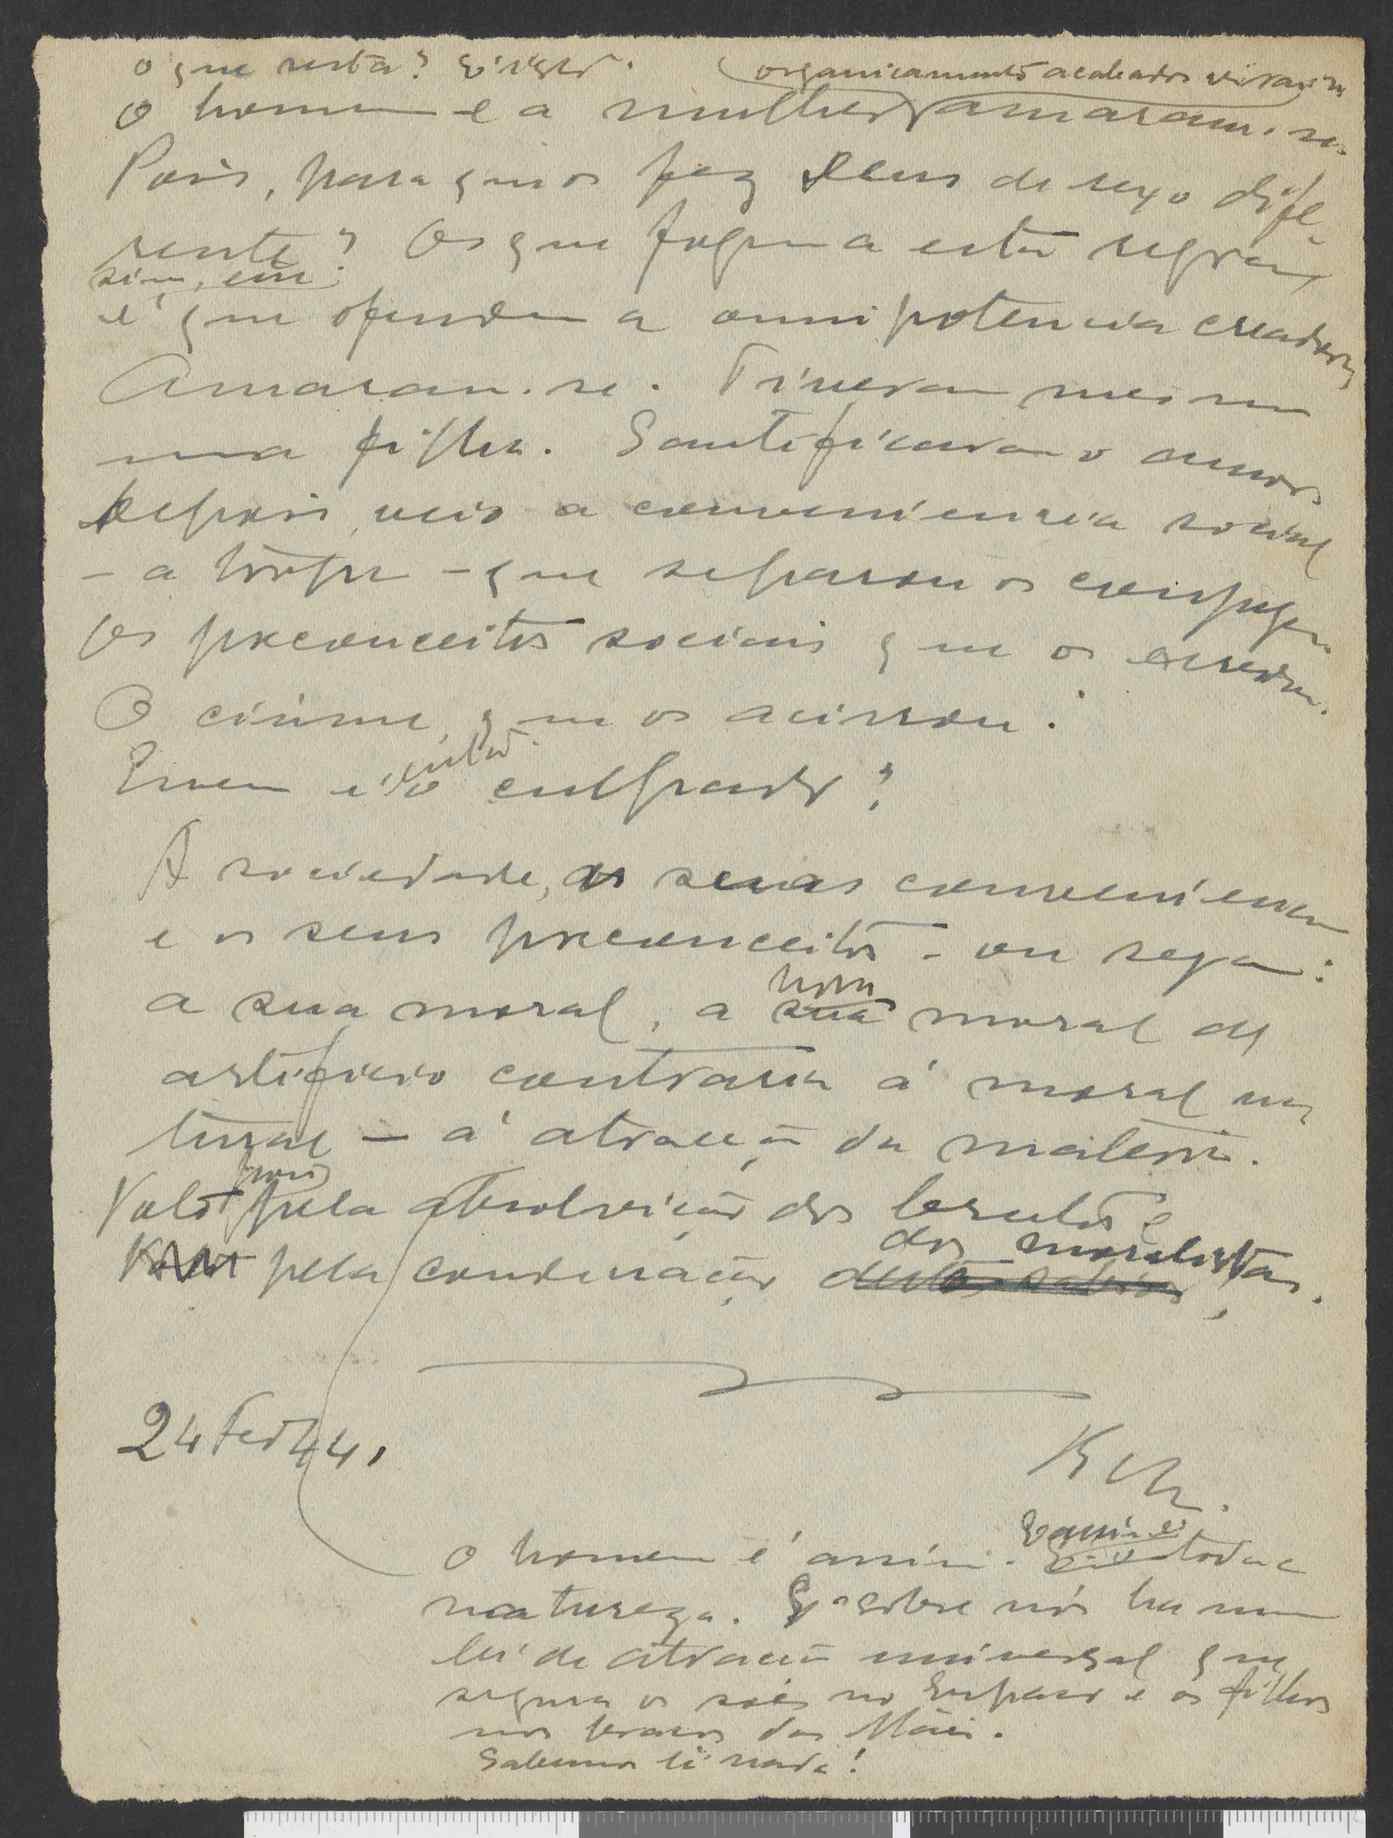 o que resta?
organicamente acabados
O homem e a mulher amaram-se.
Pois, para que os fez Deus de sexo dife-
rente? Os que fogem a esta regra,
sim,
é que ofendem a omnipotencia creadora
Amaram-se. Tiveram mesmo
uma filha. Santificaram o amor.
Depois, veio a conveniencia social
- a torpe - que separou os conjuges
Os preconceitos sociais que os
O ciume, que os acirrou.
então
Quem é o culpado?
A sociedade, as suas conveniencias
e os seus preconceitos - ou seja:
a sua moral, a sua moral de
artificio contraria á moral na-
tural — á atracção da materia.
pois
Voto pela absolvição dos brutos e
dos moralistas.
pela condenação
24 Fev 44.
O homem é assim. E assim é toda a
natureza. E sobre nós ha uma
lei de atracção universal que
segura os sóes no Espaço e os filhos
nos braços das Mães.
Sabemos lá nada!